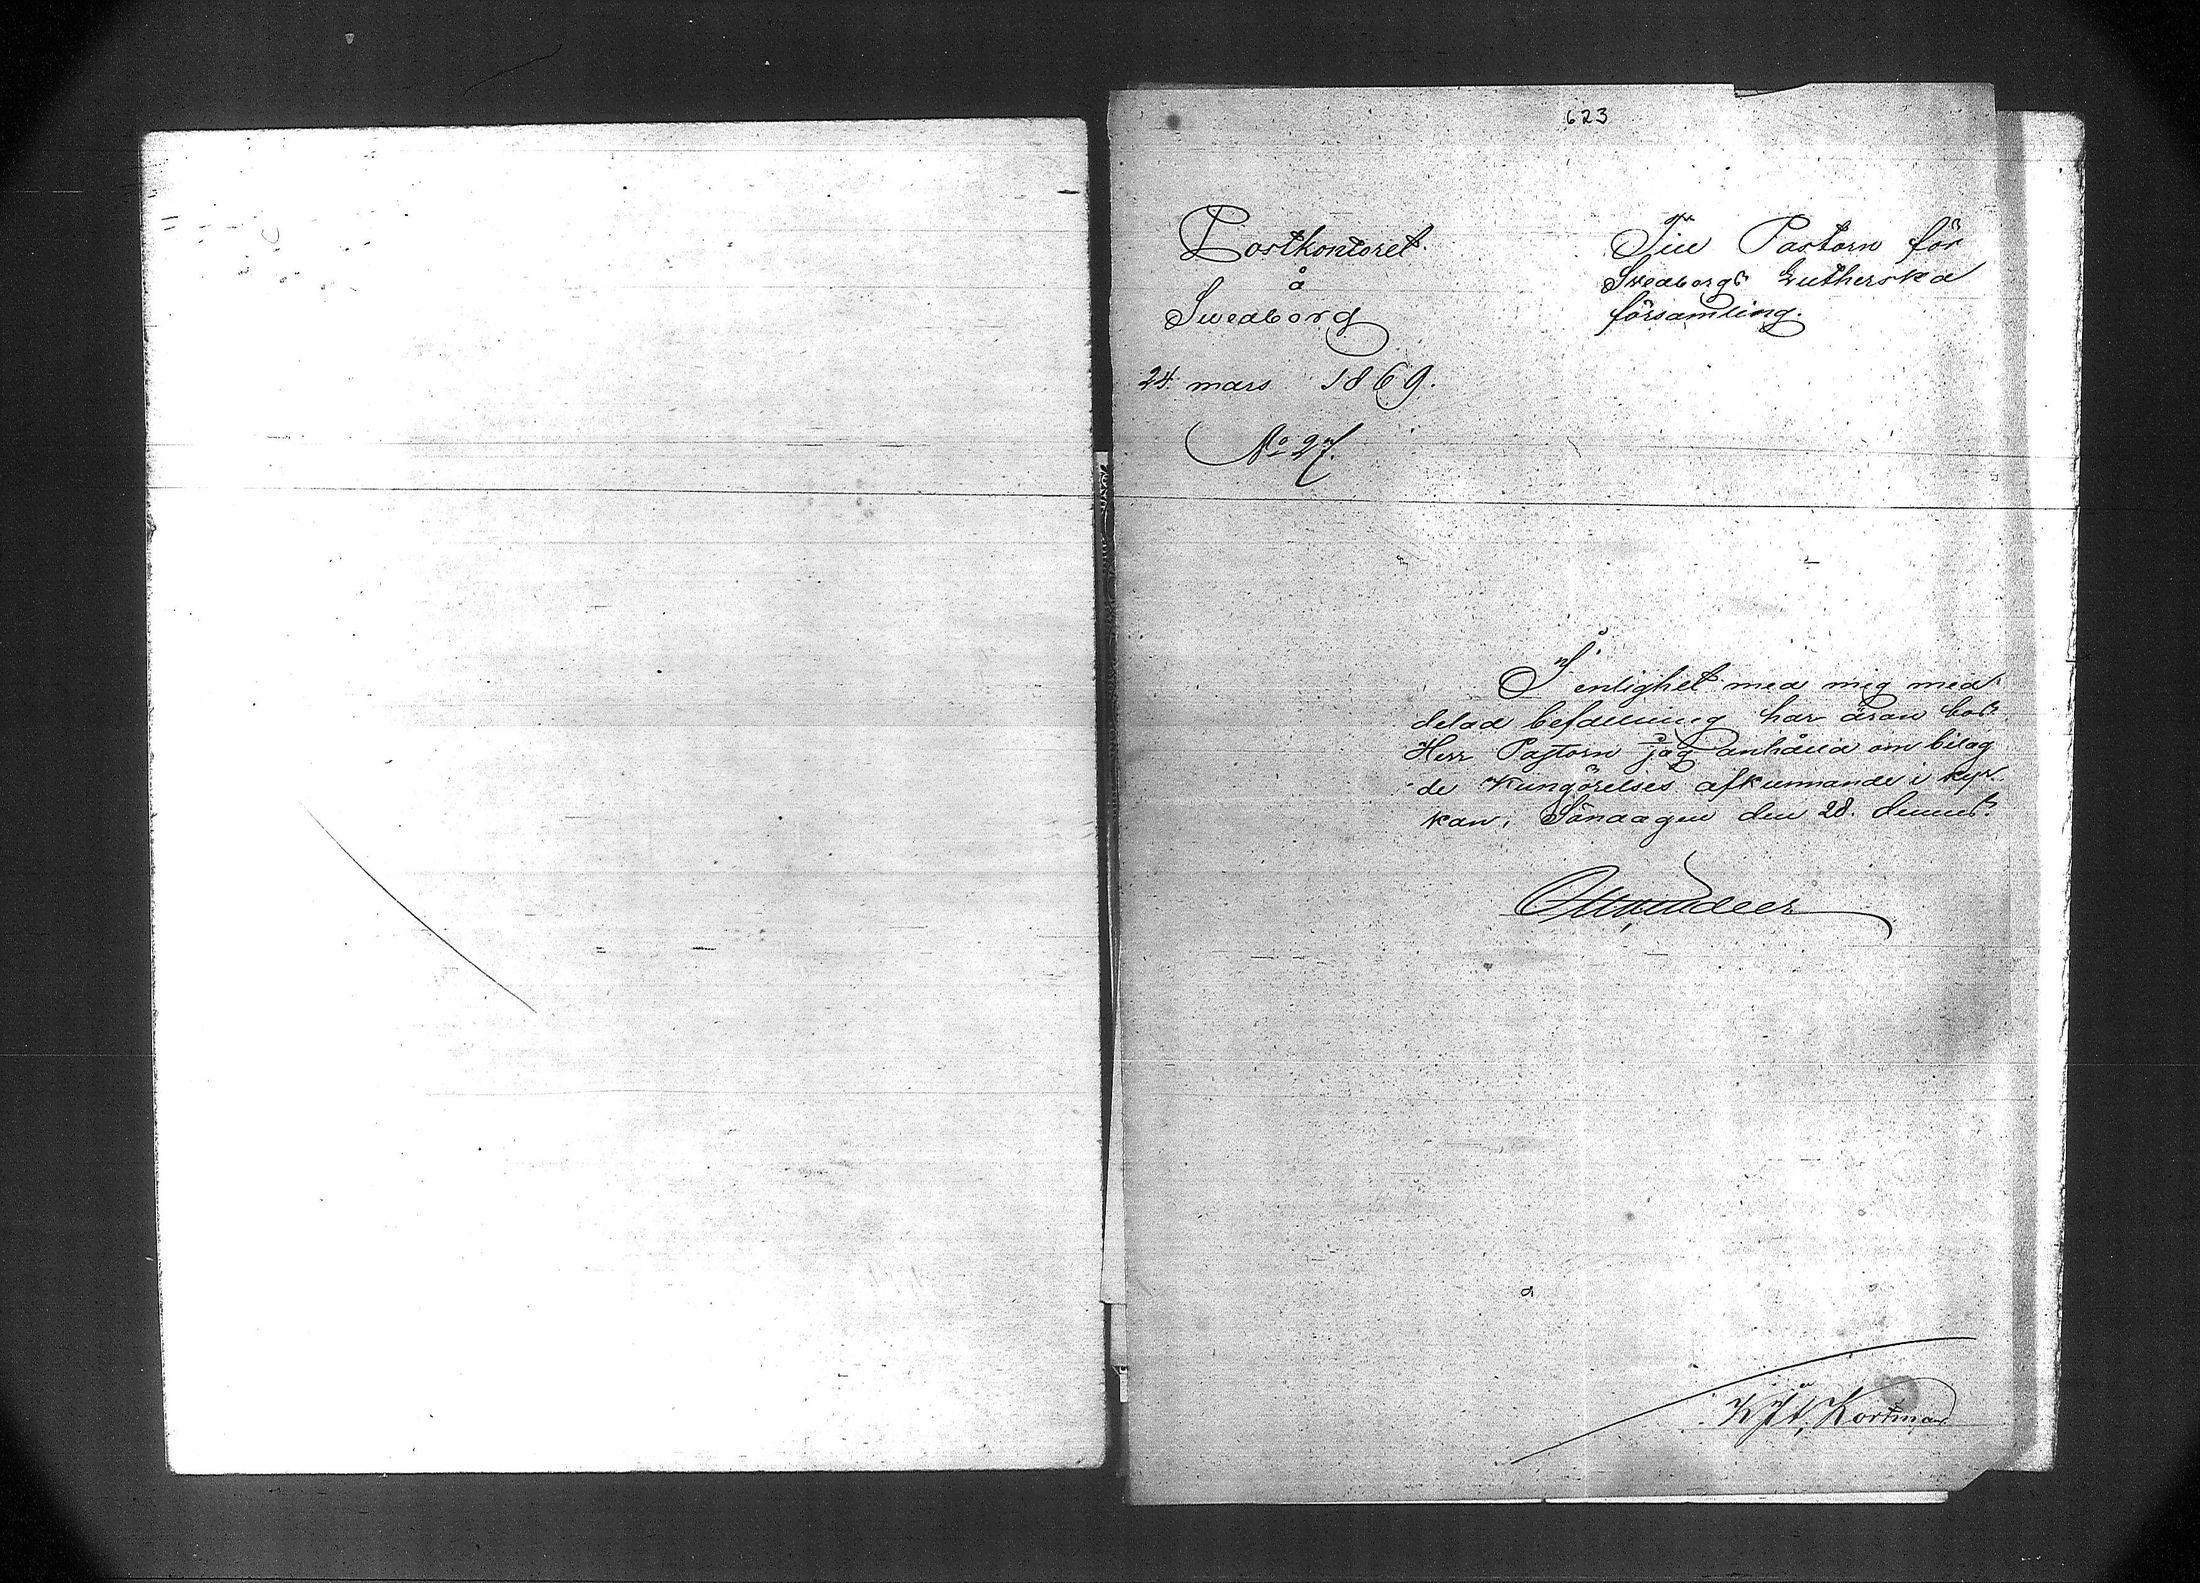 623
Postkontoret
å
Sveaborg
24 mars 1869.
No 27.
Till Pastorn för
Sveaborgs Lutherska
församling.
I enlighet med mig med-
delad befallning har äran hos
Herr Pastorn jag anhålla om bilag
de Kungörelses afkunnande i kyr-
kan, Söndagen den 28. dennes.
Kortman